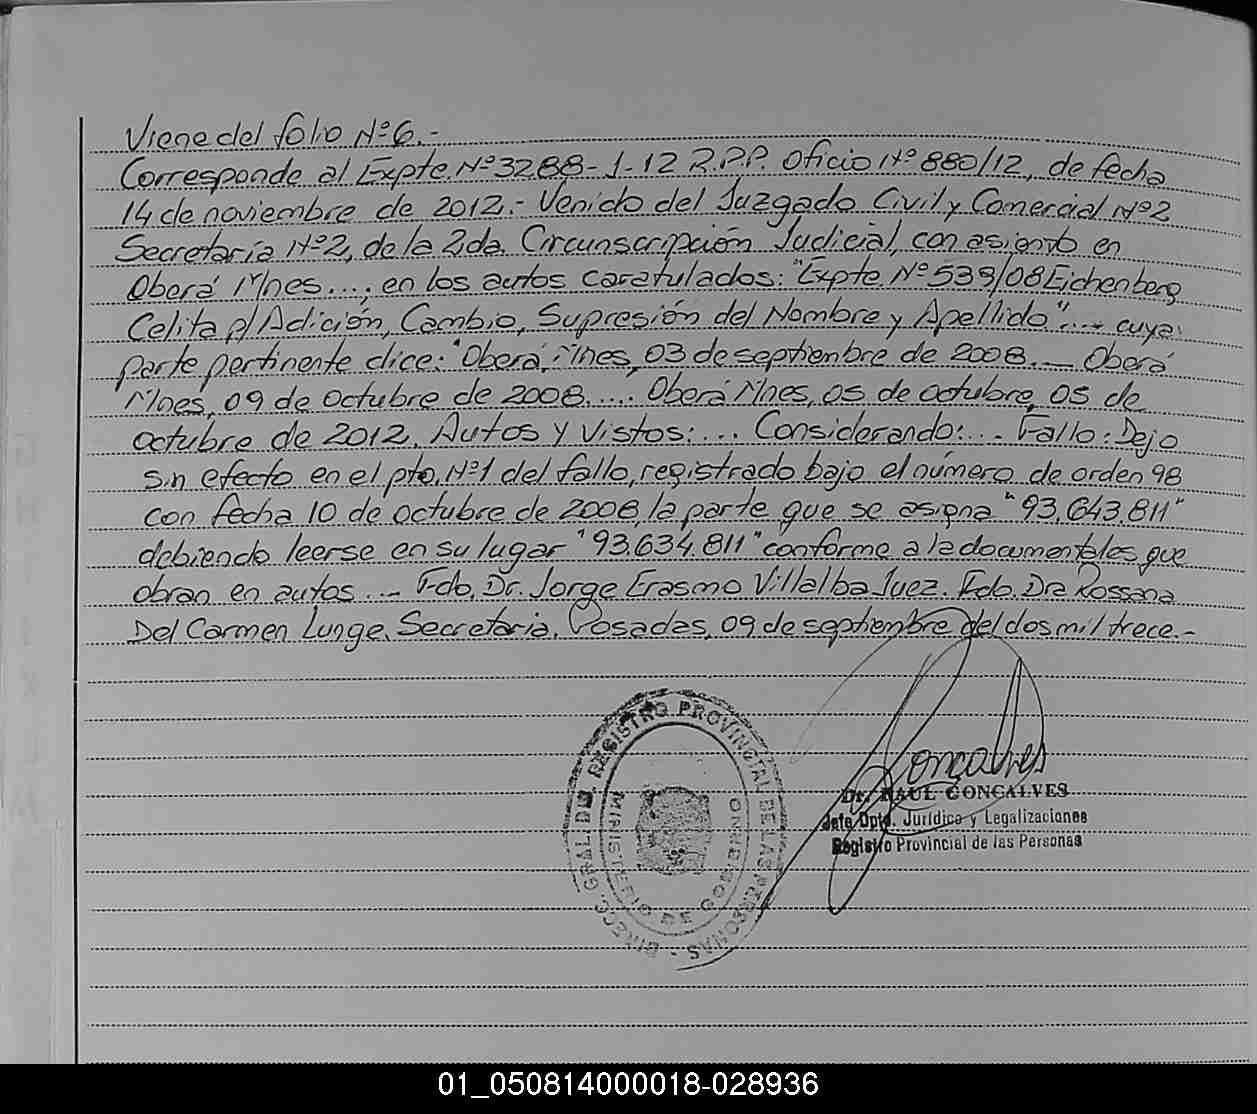 Viene del folio Nº6.-
Corresponde al Expte. Nº3288-J-12 R.P.P. Oficio Nº 880/12, de fecha
14 de noviembre de 2012.- Venido del Juzgado Civil y Comercial Nº2
Secretaría Nº2, de la 2da. Circunscripción Judicial, con asiento en
Oberá Mnes...., en los autos caratulados: "Expte. Nº 539/08 Eichenberg
Celita p/ Adición, Cambio, Supresión del Nombre y Apellido".... cuya
parte pertinente dice: "Oberá, Mnes, 03 de septienbre de 2008.— Oberá
Mnes, 09 de Octubre de 2008..... Oberá Mnes, 05 de octubre, 05 de
octubre de 2012. Autos y Vistos:... Considerando:... Fallo: Dejo
sin efecto en el pto. Nº1 del fallo, registrado bajo el número de orden 98
con fecha 10 de octubre de 2008, la parte que se asigna "93.643.811"
debiendo leerse en su lugar "93.634.811" conforme a la documentales que
obran en autos...- Fdo. Dr. Jorge Erasmo Villalba Juez. Fdo. Dra Rossana
Del Carmen Lunge. Secretaria. Posadas, 09 de septienbre del dos mil trece.-
DIRECC. GRAL. DEL REGISTRO PROVINCIAL DE LAS PERSONAS -
MINISTERIO DE GOBIERNO
Goncalves
Dr. RAUL GONCALVES
Jefe Dpto. Jurídico y Legalizaciones
Registro Provincial de las Personas
01_050814000018-028936